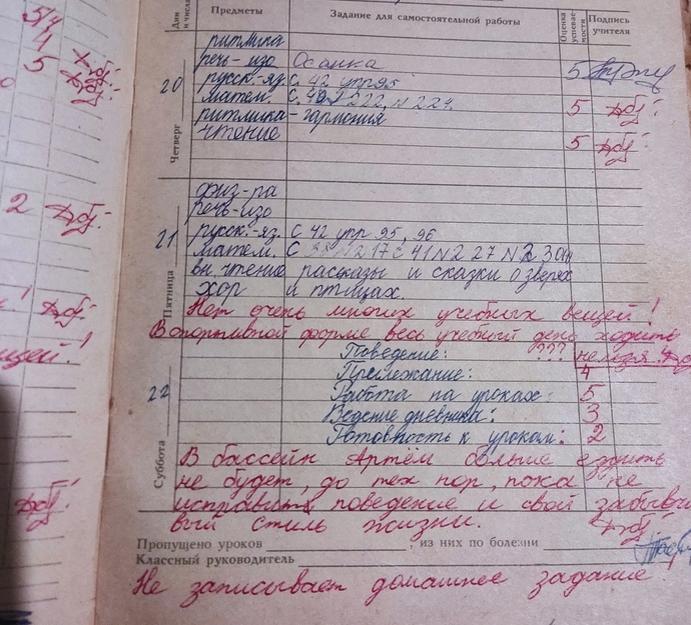 5/4
4
5
Дни и числа Предметы Задание для самостоятельной работы Оценка успеваемости Подпись учителя
20 Четверг
ритмика
речь-изо Осанка 5
русск-яз. с. 42 упр 95
матем. с. 222, N 224. 5
ритмика - гармония
чтение 5
21 Пятница
физ-ра
речь-изо
русск.-яз. с 42 упр 95, 96
матем. с 41 N2 27 N
вн. чтение рассказы и сказки о зверях
хор и птицах.
2
Нет очень многих учебных вещей!
В спортивной форме весь учебный день ходить
Поведение: ??? нельзя.
22 Суббота
Прилежание: 4
Работа на уроках: 5
Ведение дневника: 3
Готовность к урокам: 2
В бассейн Артём больше ездить
не будет, до тех пор, пока не
исправит поведение и свой забывчи
вый стиль жизни.
Пропущено уроков , из них по болезни
Классный руководитель
Не записывает домашнее задание